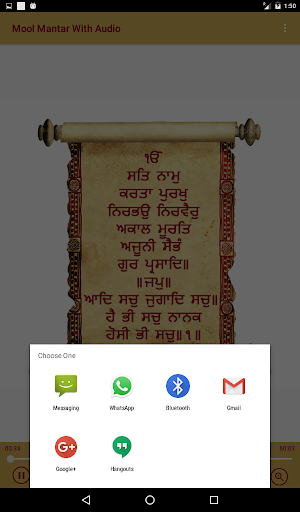 1:50
Mool Mantar With Audio
ੴ
ਸਤਿ ਨਾਮੁ
ਕਰਤਾ ਪੁਰਖੁ
ਨਿਰਭਉ ਨਿਰਵੈਰੁ
ਅਕਾਲ ਮੂਰਤਿ
ਅਜੂਨੀ ਸੈਭੰ
ਗੁਰ ਪ੍ਰਸਾਦਿ॥
॥ਜਪੁ॥
ਆਦਿ ਸਚੁ ਜੁਗਾਦਿ ਸਚੁ॥
ਹੈ ਭੀ ਸਚੁ ਨਾਨਕ
ਹੋਸੀ ਭੀ ਸਚੁ॥੧॥
Choose One
Messaging
WhatsApp
Bluetooth
Gmail
Google+
Hangouts